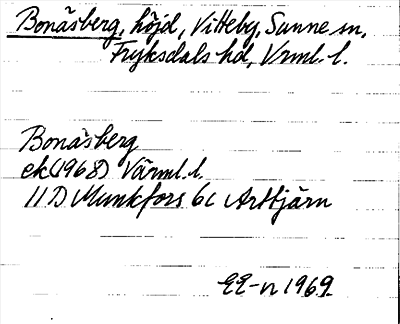 Bonäsberg, höjd, Vitteby, Sunne sn,
Fryksdals hd, Vrml. l.
Bonäsberg
ek (1968) Värml. l.
11D Munkfors 6c Arttjärn
EE-n 1969.